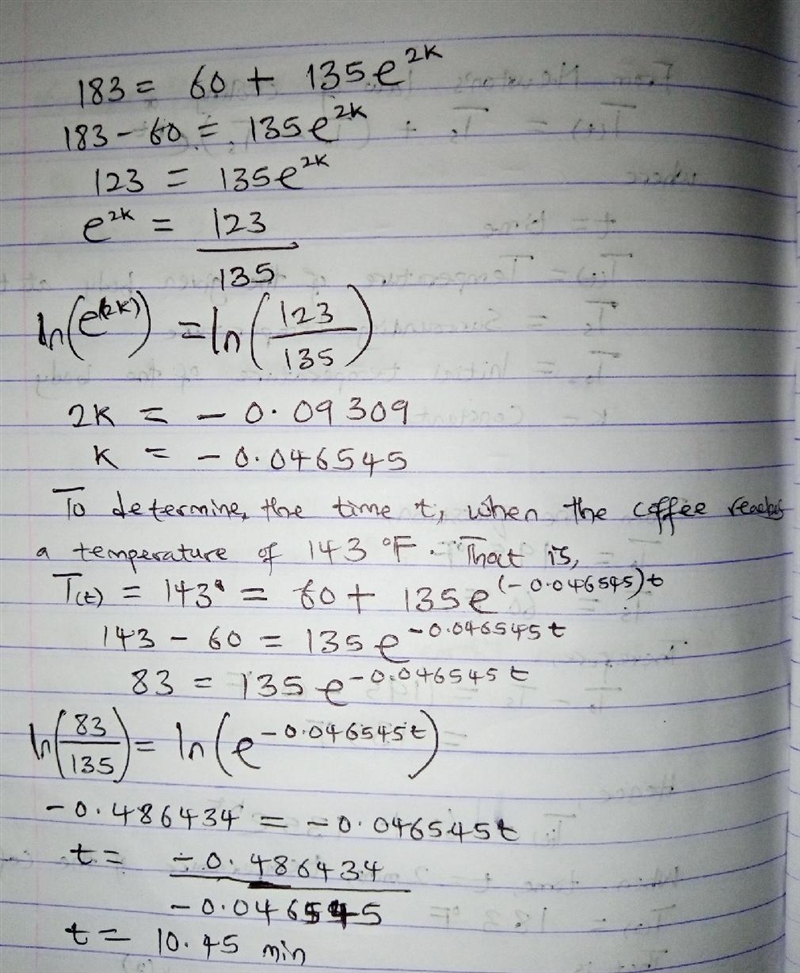 183 = 60 + 135e^2k
183 - 60 = 135e^2k
123 = 135e^2k
e^2k = 123/135
ln(e^(2k)) = ln(123/135)
2k = - 0.09309
k = - 0.046545
To determine, the time t, when the coffee reaches
a temperature of 143 °F. That is,
T(t) = 143° = 60 + 135e^(-0.046545)t
143 - 60 = 135e^-0.046545t
83 = 135e^-0.046545t
ln(83/135) = ln(e^-0.046545t)
-0.486434 = -0.046545t
t = -0.486434/-0.046545
t = 10.45 min